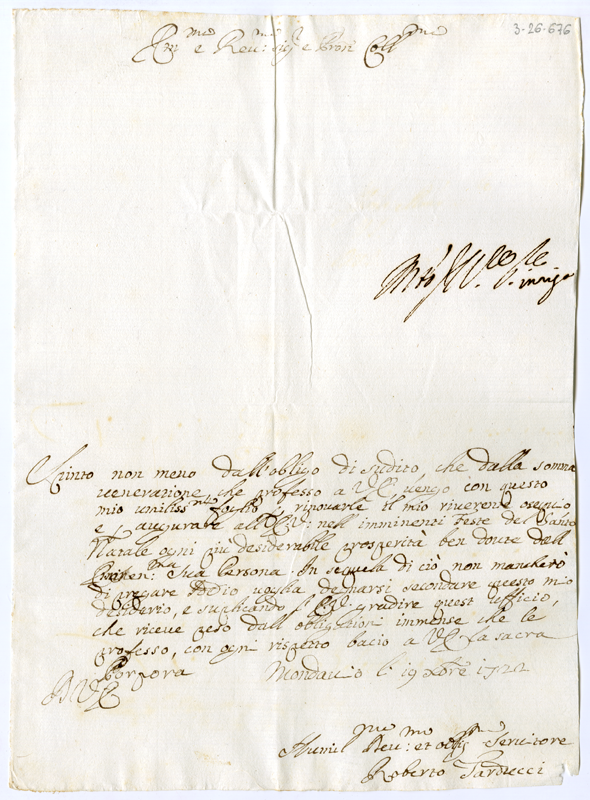 3-26-676
Em:mo e Reu:mo Sig:e e Pron Coll:mo
Spinto non meno dall'obligo di sudito, che dalla somma
uenerazione che professo a V.E., uengo con questo
mio umiliss:mo foglio à rinouarle il mio riuerente osequio
e augurare all'E.V: nell'imminenti feste del Santo
Natale ogni più desiderabile prosperità ben douta all'
Eminen:ma Sua Persona. In sequela di ciò non mancherò
di pregare Iddio uoglia degnarsi secondare questo mio
desiderio, e suplicando l'E.V. gradire quest'uffizio,
che riceue peso dall'obligationi immense che le
professo, con ogni rispetto bacio a V.E. la sacra
Porpora Mondauio li 19 Xbre 1722
D V.E.
Humil:mo Deu:mo et oblig:mo Seruitore
Roberto Tarducci